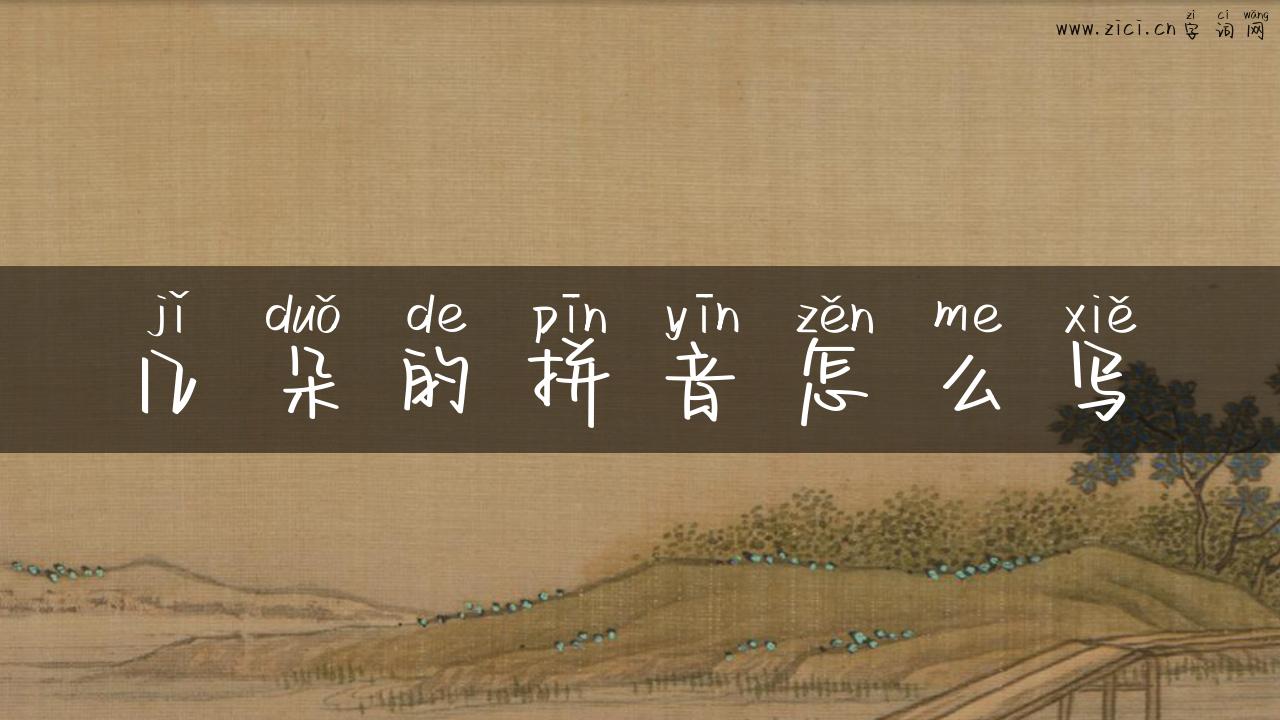 zì cí wǎng
www.zici.cn字词网
jǐ duǒ de pīn yīn zěn me xiě
几朵的拼音怎么写